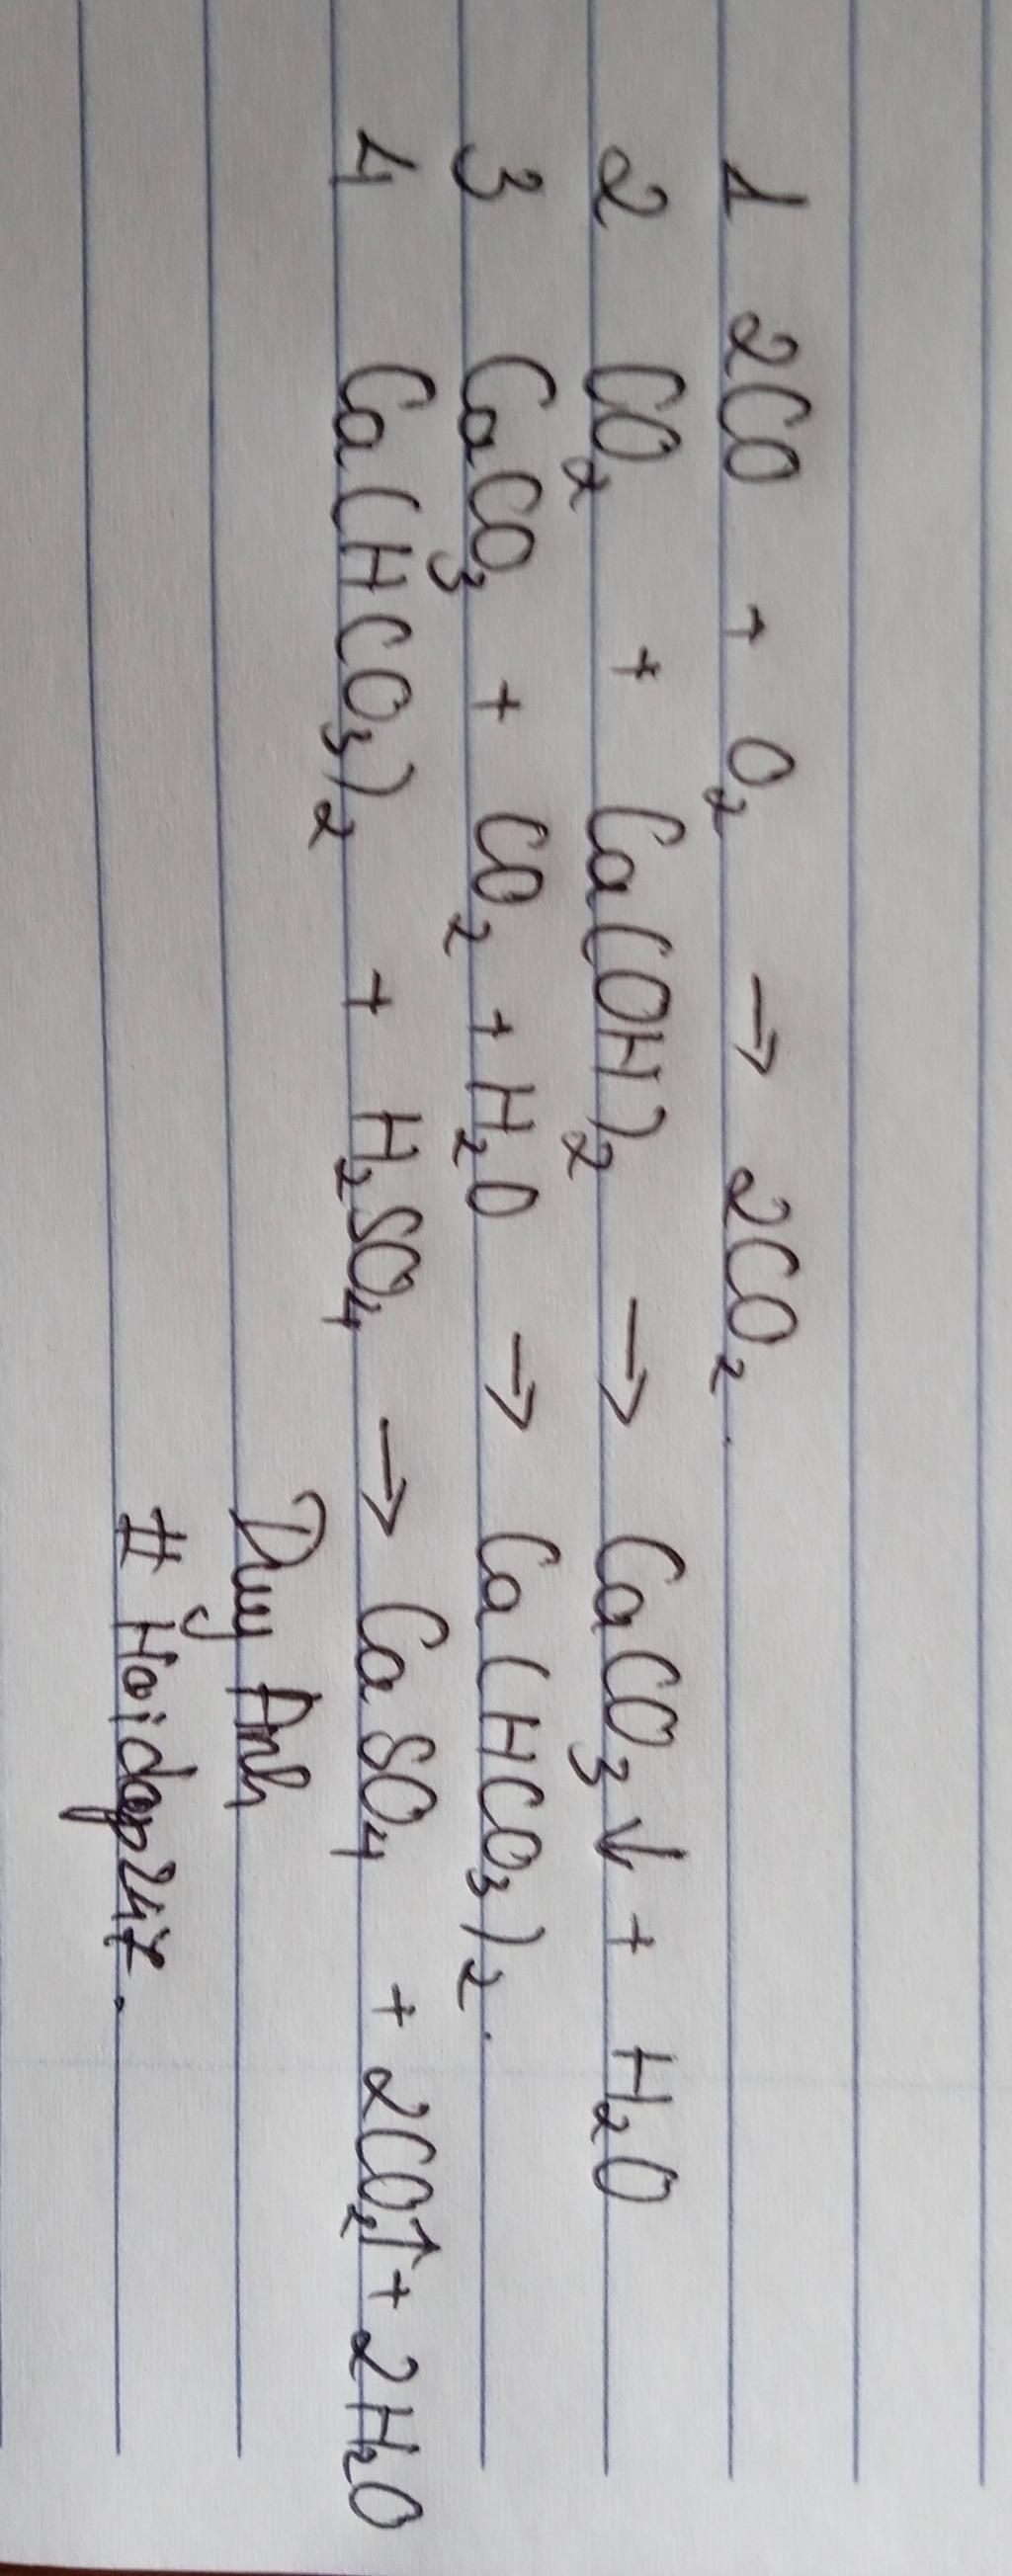 1 2CO + O₂ → 2CO₂.
2 CO₂ + Ca(OH)₂ → CaCO₃↓ + H₂O
3 CaCO₃ + CO₂ + H₂O → Ca(HCO₃)₂.
4 Ca(HCO₃)₂ + H₂SO₄ → CaSO₄ + 2CO₂↑ + 2H₂O
Duy Anh
# Hoidap247.